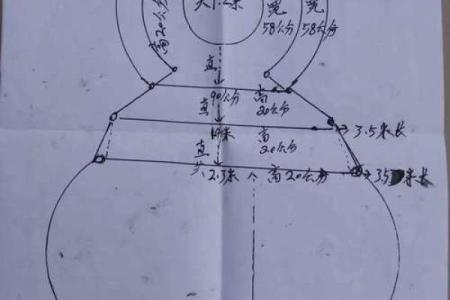 大1.2米
宽 宽
58公分 58公分
高20公分
直
90公分 高
20公分
直
1.9米 高
20公分
3.5米长
直
共2.3米 个 高20公分
米长